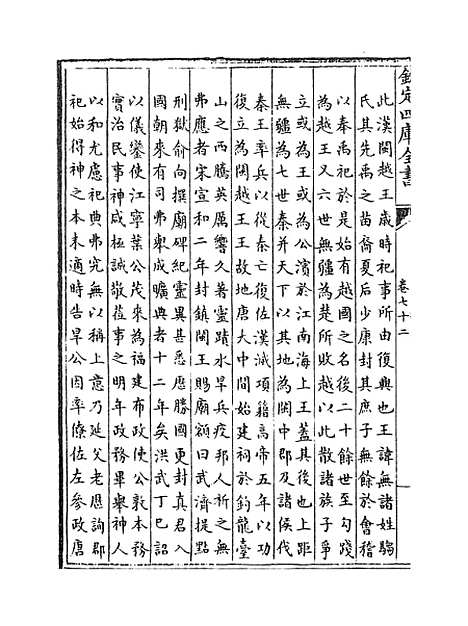 欽定四庫全書
卷七十二
此漢閩越王歲時祀事所由復興也王諱無諸姓騶
氏其先禹之苗裔夏后少康封其庶子無餘於會稽
以奉禹祀於是始有越國之名後二十餘世至勾踐
為越王又六世無疆為楚所敗越以此散諸族子爭
立或為王或為公濱於江南海上王蓋其後也上距
無疆為七世秦并天下以其地為閩中郡及諸侯伐
秦王率兵以從秦亡復佐漢滅項籍高帝五年以功
復立為閩越王王故地唐大中間始建祠於釣龍臺
山之西騰英厲響久著靈蹟水旱兵疫邦人祈之無
弗應者宋宣和二年封鎮閩王賜廟額曰武濟提點
刑獄俞向撰廟碑紀靈異甚悉應勝國更封真君入
國朝來有司弗舉曠典者十二年矣洪武丁巳詔
以儀鑾使江寧葉公茂來為福建布政使公敦本務
實治民事神咸極誠敬蒞事之明年政務畢舉神人
以和尤慮祀典弗究無以稱上意乃延父老歷詢郡
祀始得神之本末適時告旱公因率僚佐左參政唐